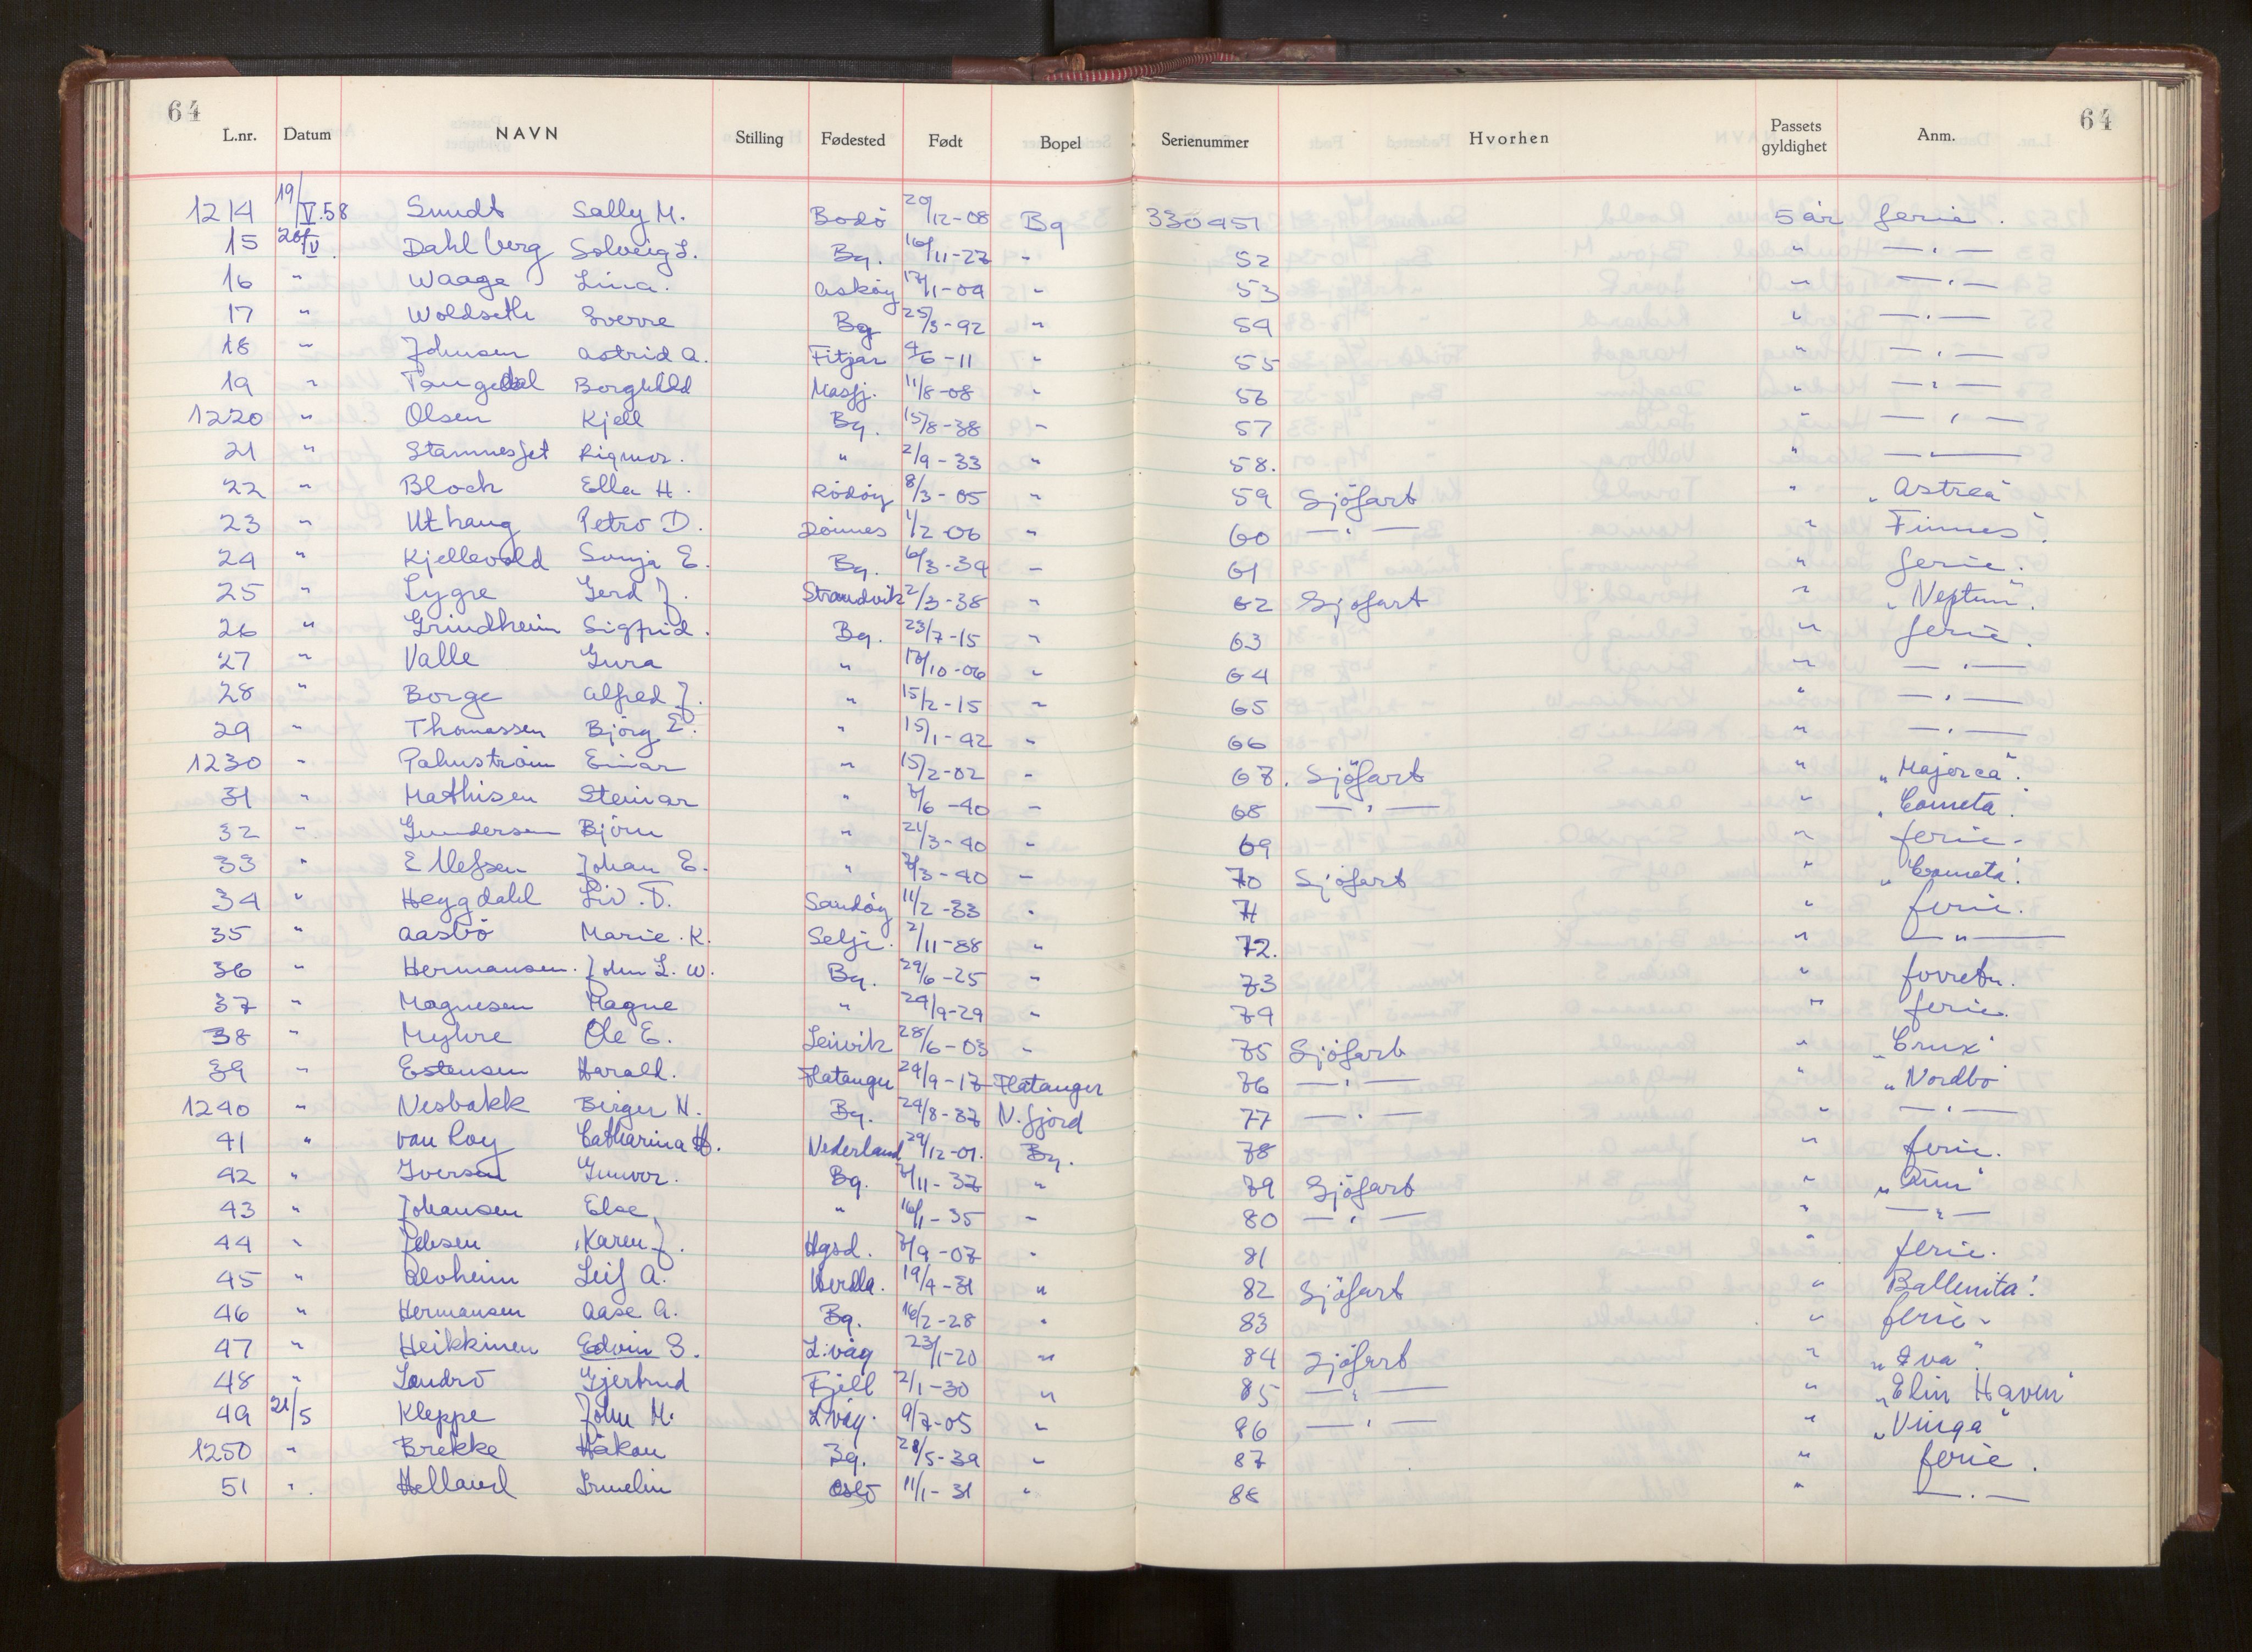 64 64
L.nr. Datum NAVN Stilling Fødested Født Bopel Serienummer Hvorhen Passets gyldighet Anm.
1214 19/V.58 Smidt Sally M. Bodö 20/12-08 Bg 330451 5 år ferie.
15 20/V Dahlberg Solveig L. Bg. 16/11-27 " 52 " —"—
16 " Waage Lina. Askøy 17/1-04 " 53 " —"—
17 " Woldseth Sverre Bg 25/3-92 " 54 " —"—
18 " Johnsen Astrid A. Fitjar 4/6-11 " 55 " —"—
19 " Tangedal Borghild Masfj. 11/8-08 " 56 " —"—
1220 " Olsen Kjell Bg. 15/8-38 " 57 " —"—
21 " Stamnesfet Rigmor. " 2/9-33 " 58. " —"—
22 " Bloch Ella H. Rödöy 8/3-05 " 59 Sjöfart " "Astrea"
23 " Uthaug Petro D. Dönnes 1/2-06 " 60 —"— " Finnes".
24 " Kjellevold Sonja E. Bg. 6/3-34 " 61 " ferie.
25 " Lygre Gerd J. Strandvik 2/3-38 " 62 Sjöfart " "Neptun".
26 " Grindheim Sigfrid. Bg. 23/7-15 " 63 " ferie.
27 " Valle Gura " 17/10-06 " 64 " —"—
28 " Borge Alfred J. " 15/2-15 " 65 " —"—
29 " Thomassen Björg E. " 15/1-42 " 66 " —"—
1230 " Palmström Einar " 15/2-02 " 67. Sjöfart " "Majorca".
31 " Mathisen Steinar " 7/6-40 " 68 —"— " "Cometa".
32 " Gundersen Björn " 21/3-40 " 69 " ferie.
33 " Ellefsen Johan E. " 7/3-40 " 70 Sjöfart " "Cometa".
34 " Heggdahl Liv. T. Sandöy 11/2-33 " 71 " ferie.
35 " Aasbö Marie. K. Selje. 2/11-88 " 72. " —"—
36 " Hermansen. John L. W. Bg. 29/6-25 " 73 " forretn.
37 " Magnesen Magne " 24/9-29 " 74 " ferie.
38 " Myhre Ole E. Leirvik 28/6-03 " 75 Sjöfart " "Crux"
39 " Estensen Harald. Flatanger 24/9-17 Flatanger 76 —"— " "Nordbo"
1240 " Nesbakk Birger N. Bg. 24/8-37 N.fjord 77 —"— " —"—
41 " van Roy Catharina H. Nederland 29/12-01. Bg. 78 " ferie.
42 " Iversen Gunvor. Bg. 7/11-37 " 79 Sjöfart "
43 " Johansen Else " 16/1-35 " 80 —"— " —"—
44 " Karen J. Hgsd. 7/9-07 " 81 " ferie.
45 " Alvheim Leif A. Herdla. 19/4-31 " 82 Sjöfart " Ballenita".
46 " Hermansen Aase A. Bg. 16/2-28 " 83 " ferie.
47 " Heikkinen Edvin S. L:våg 23/1-20 " 84 Sjöfart " "Eva".
48 " Landrö Gjertrud Fjell 2/1-30 " 85 —"— " "Elin Haven"
49 21/5 Kleppe John M. L:våg. 9/7-05 " 86 —"— " "Vinga"
1250 " Brekke Håkon Bg. 28/5-39 " 87 " ferie.
51 " Helland Irmelin Oslo 11/1-31 " 88 " —"—